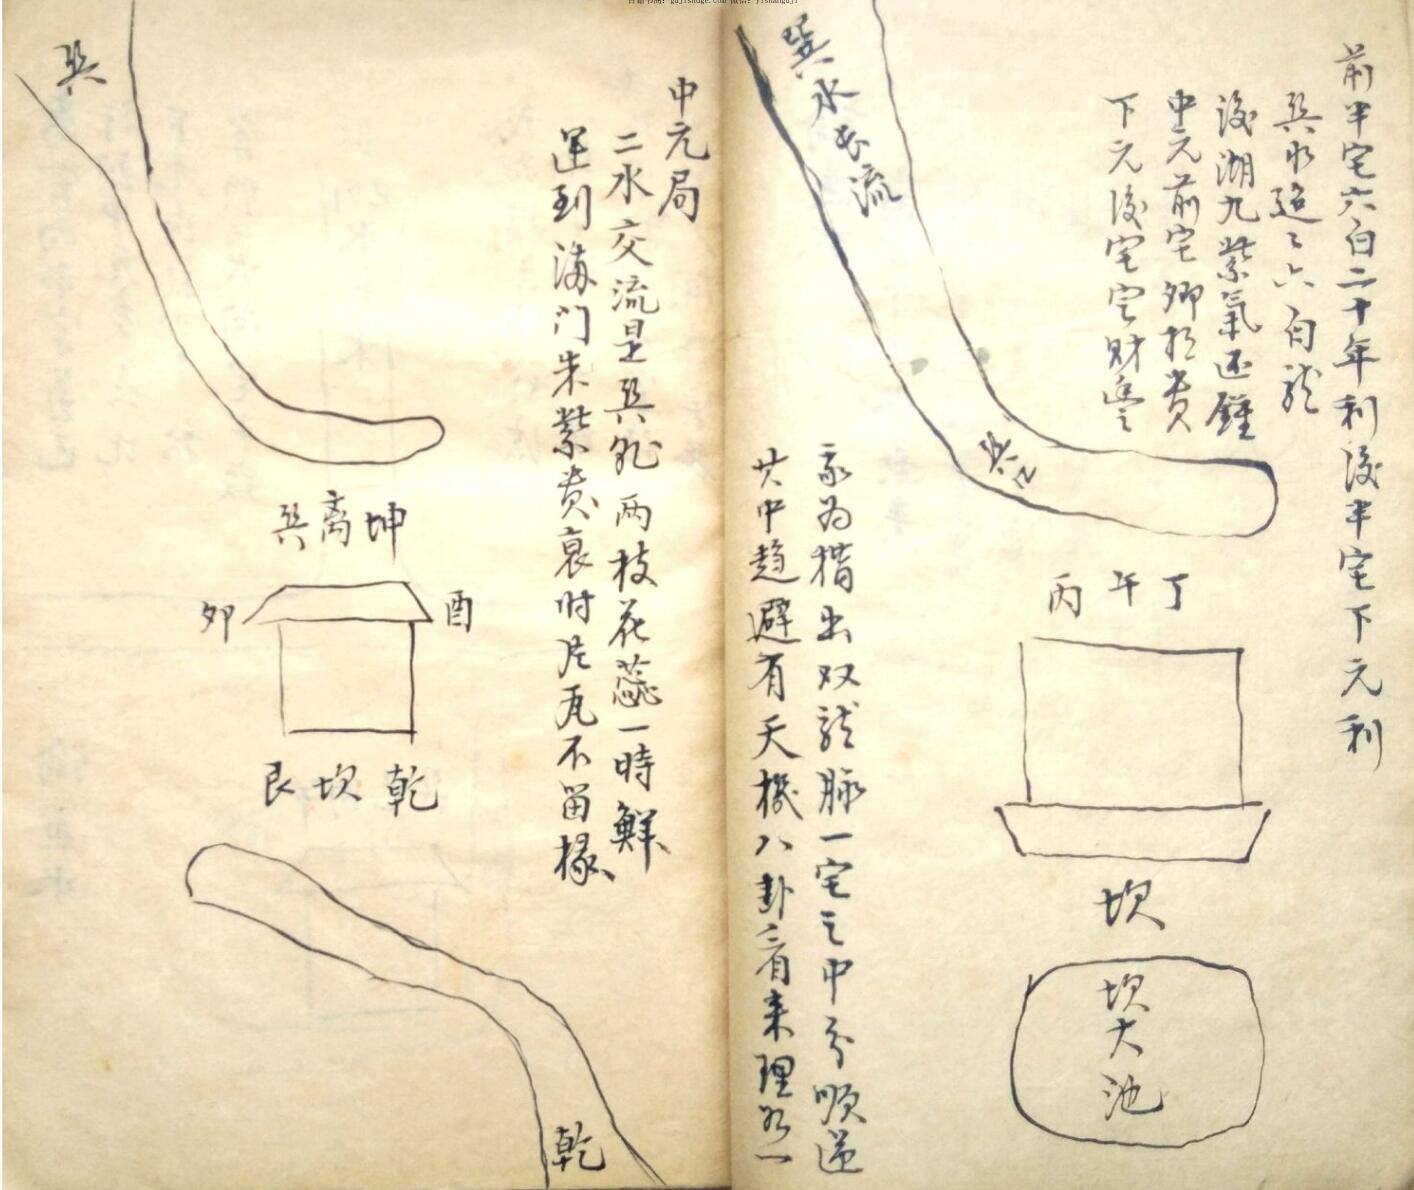 前半宅六白二十年利後半宅下元利
巽水迢々六白龍
後湖九紫氣还鍾
中元前宅卿於贵
下元後宅宅財豊
巽水长流
巽位
丙午丁
坎
坎大池
我为猎出双龍脉一宅之中分順逆
其中趋避有天機八卦看来理为一
中元局
二水交流是巽乾两枝花蕊一時鮮
運到海门朱紫贵衰时片瓦不留椽
巽
巽离坤
卯
酉
艮坎乾
乾